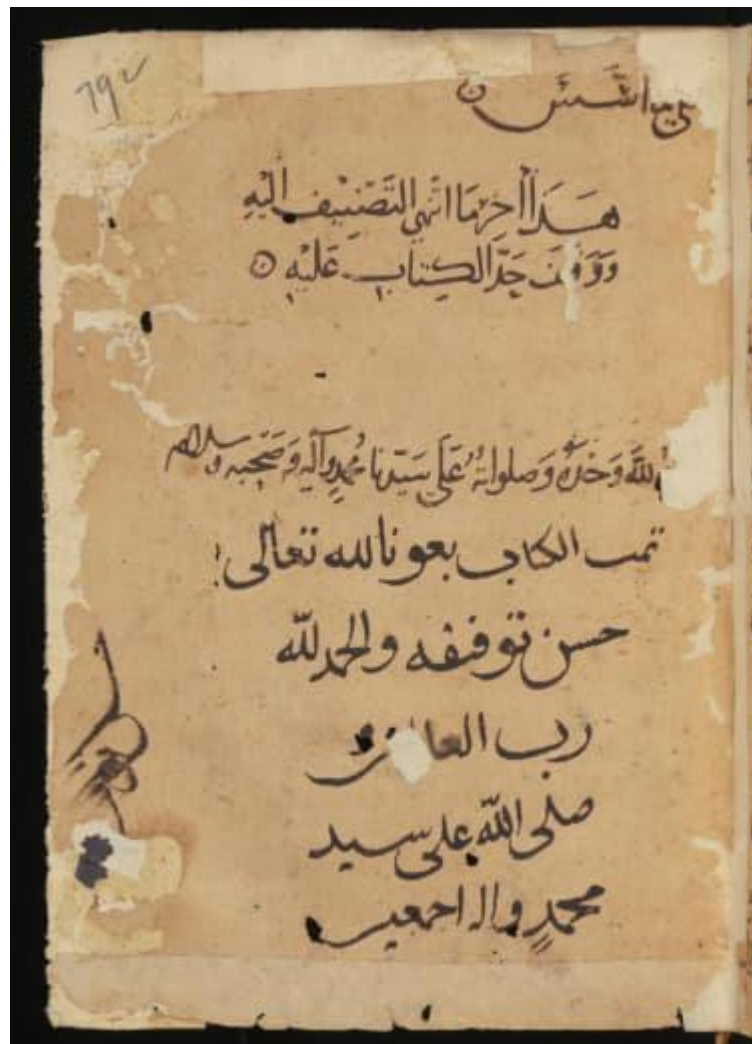 ٦٩٧
الشمس
هذا اخر ما انتهى التصنيف اليه
ووقف حد الكتاب عليه
لله وحده وصلواته على سيدنا محمد وآله وصحبه وسلامه
تمت الكتاب بعون الله تعالى
حسن توفيقه والحمد لله
رب العالمين
صلى الله على سيد
محمد واله اجمعين